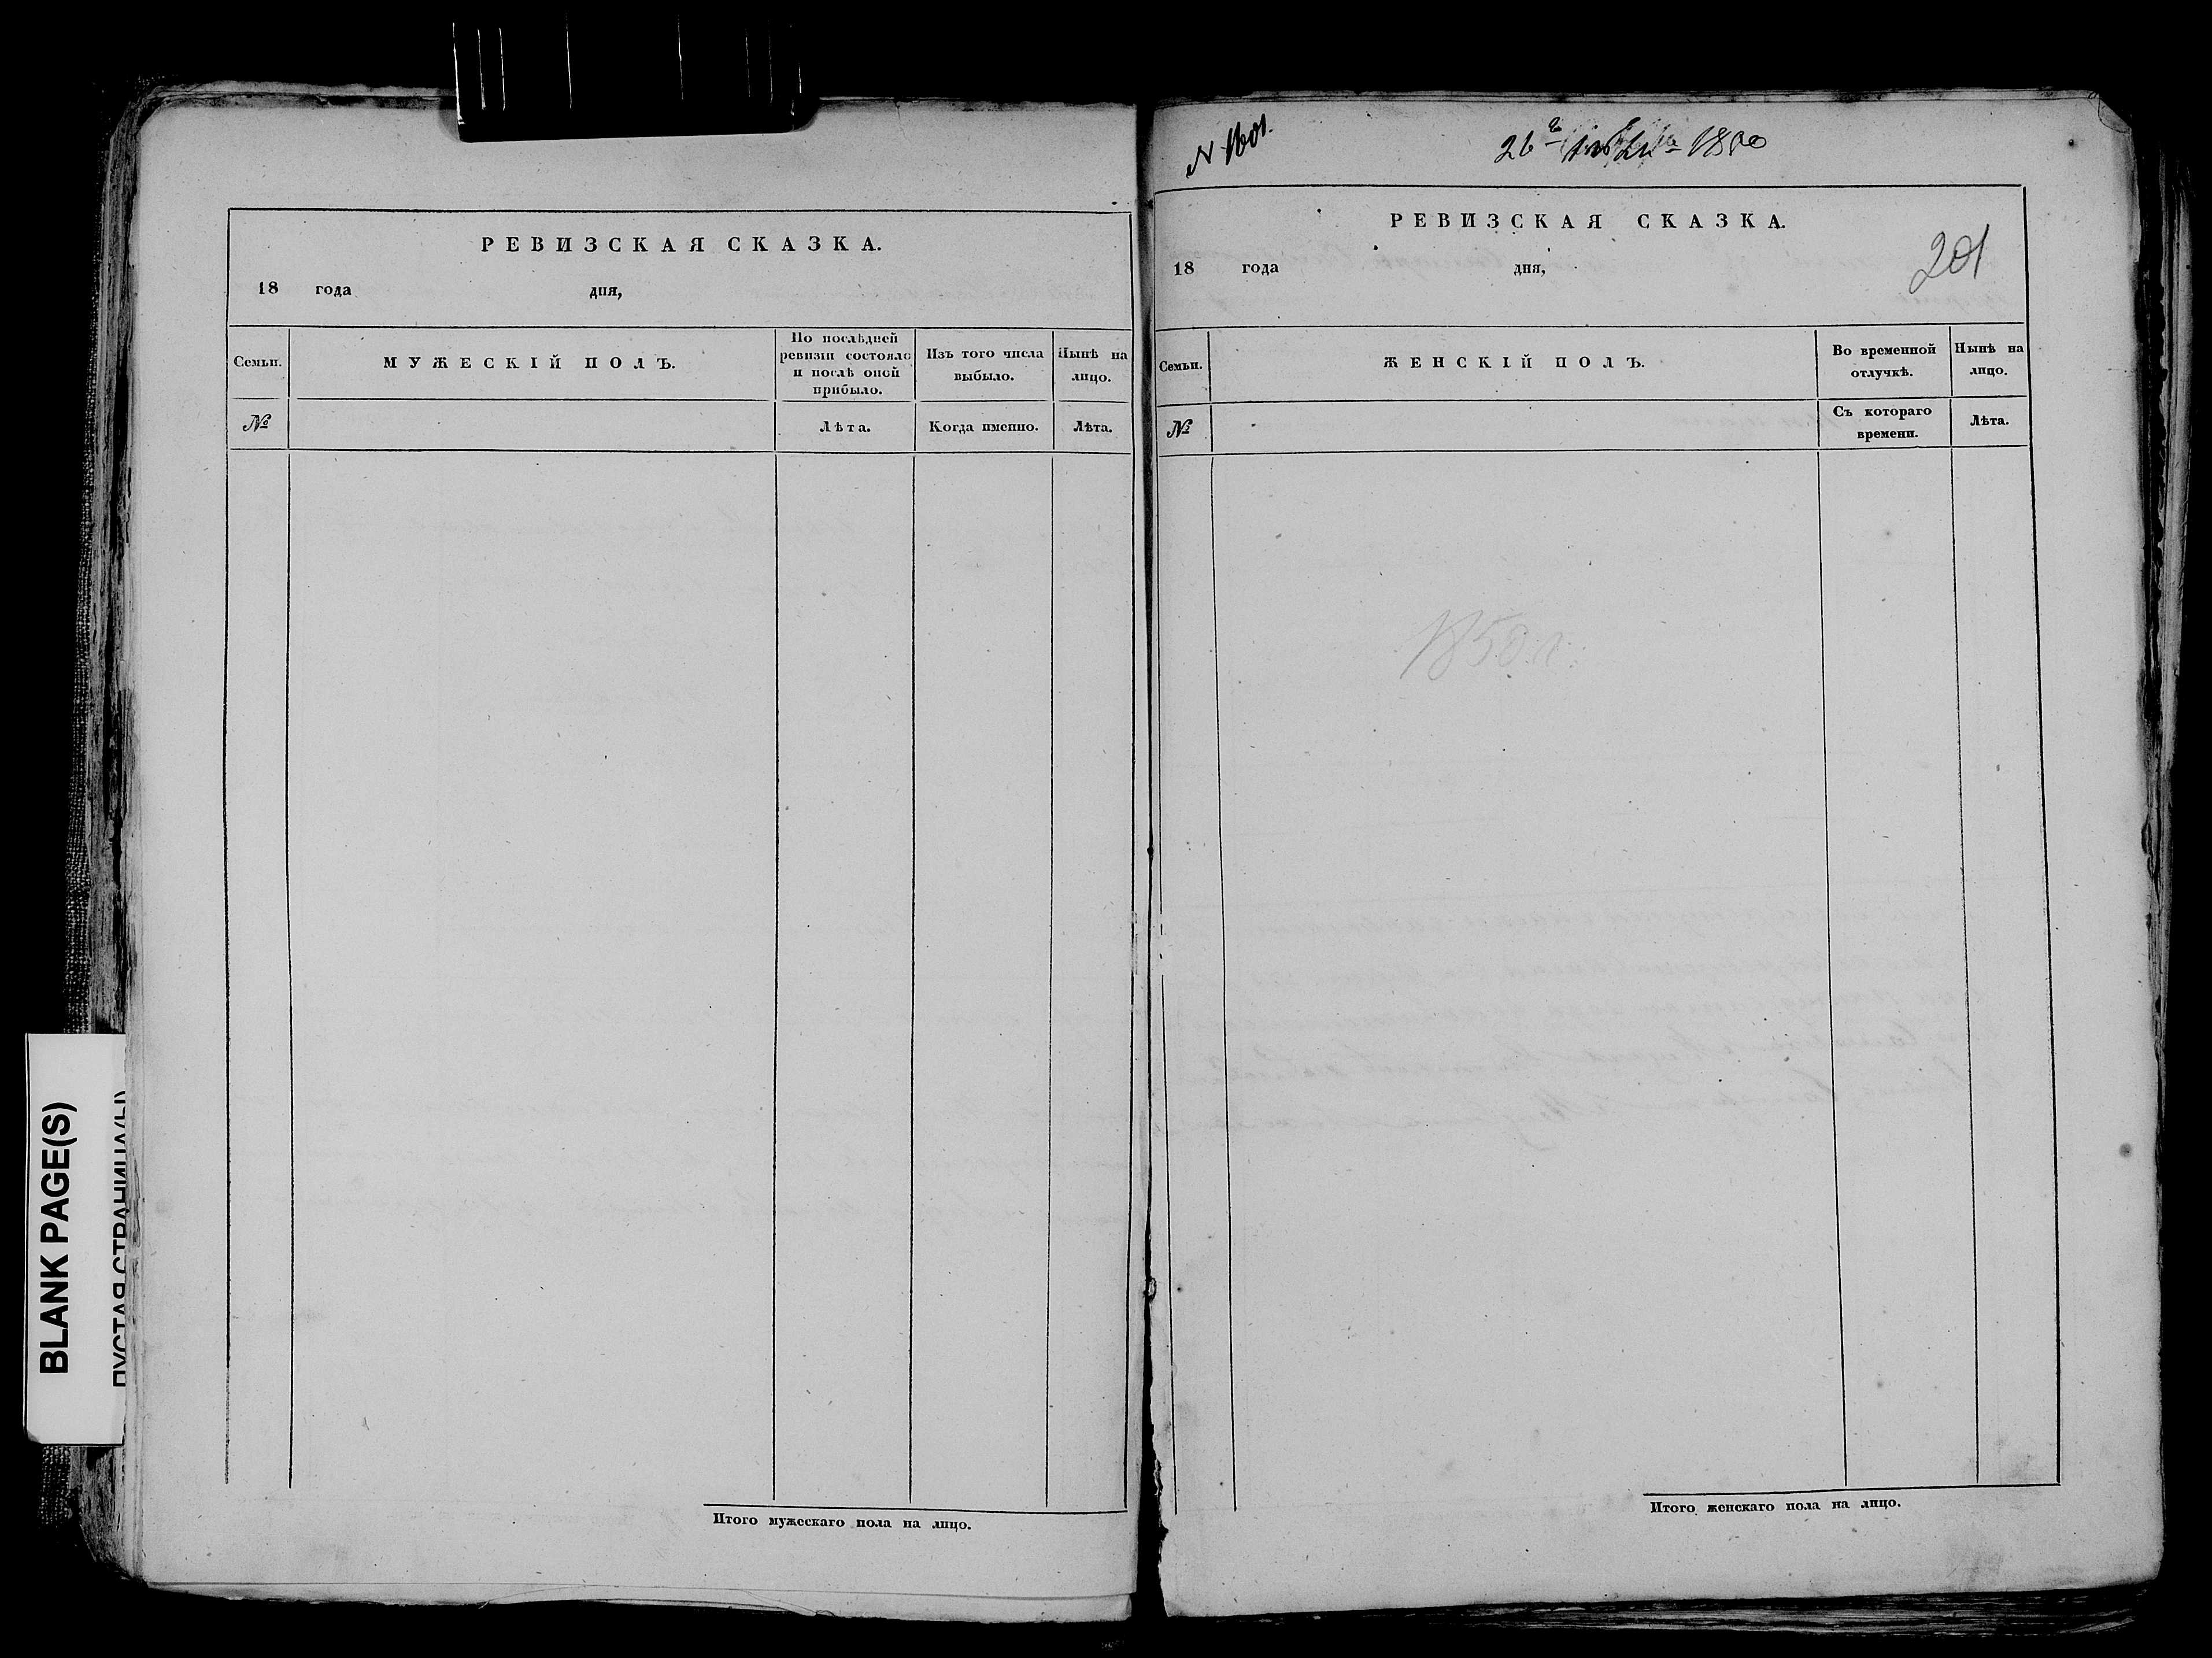 РЕВИЗСКАЯ СКАЗКА.
18 года дня,
Семьи. МУЖЕСКІЙ ПОЛЪ. По послѣдней ревизіи состояло и послѣ оной прибыло. Изъ того числа выбыло. Нынѣ на лицо.
№ Лѣта. Когда именно. Лѣта.
Итого мужескаго пола на лицо.
BLANK PAGE(S)
ПУСТАЯ СТРАНИЦА(Ы)
N 1601.
26 1850
РЕВИЗСКАЯ СКАЗКА.
201
18 года дня,
Семьи. ЖЕНСКІЙ ПОЛЪ. Во временной отлучкѣ. Нынѣ на лицо.
№ Съ котораго времени. Лѣта.
1850 г.
Итого женскаго пола на лицо.